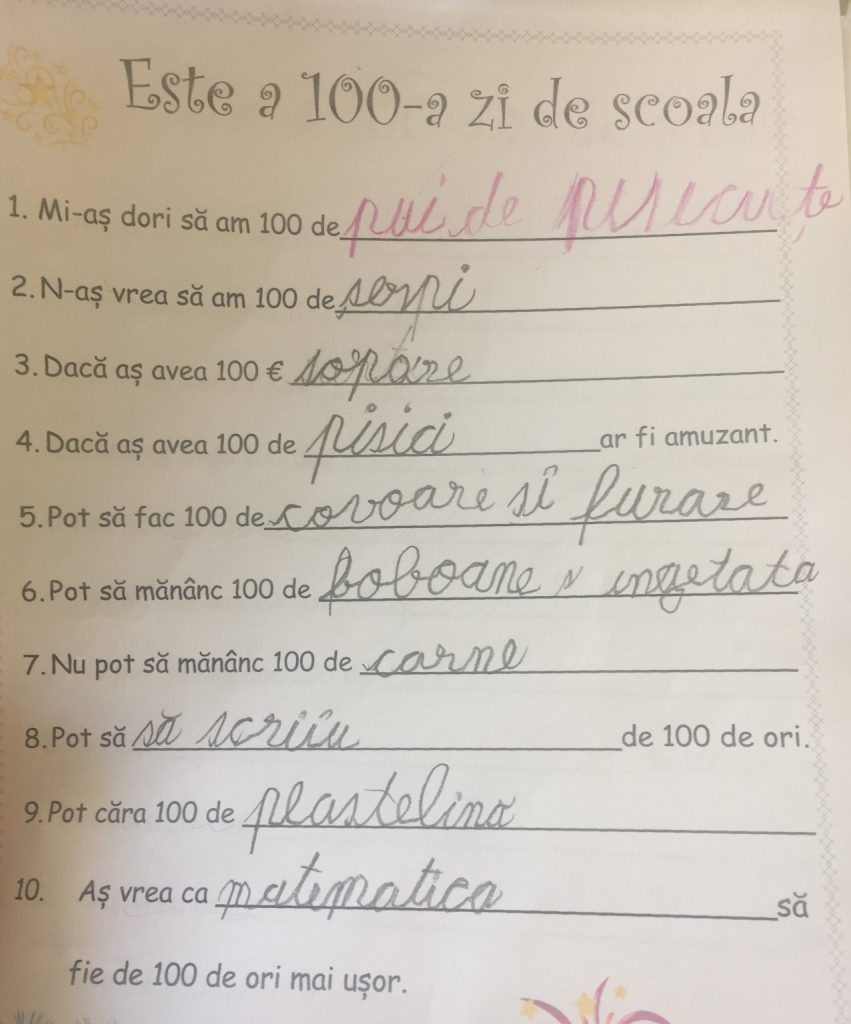 Este a 100-a zi de scoala
1. Mi-aș dori să am 100 de pui de
2. N-aș vrea să am 100 de șerpi
3. Dacă aș avea 100 € sopare
4. Dacă aș avea 100 de pisici ar fi amuzant.
5. Pot să fac 100 de covoare si
6. Pot să mănânc 100 de boboane ingetata
7. Nu pot să mănânc 100 de carne
8. Pot să să scriiu de 100 de ori.
9. Pot căra 100 de plastelina
10. Aș vrea ca matematica să
fie de 100 de ori mai ușor.